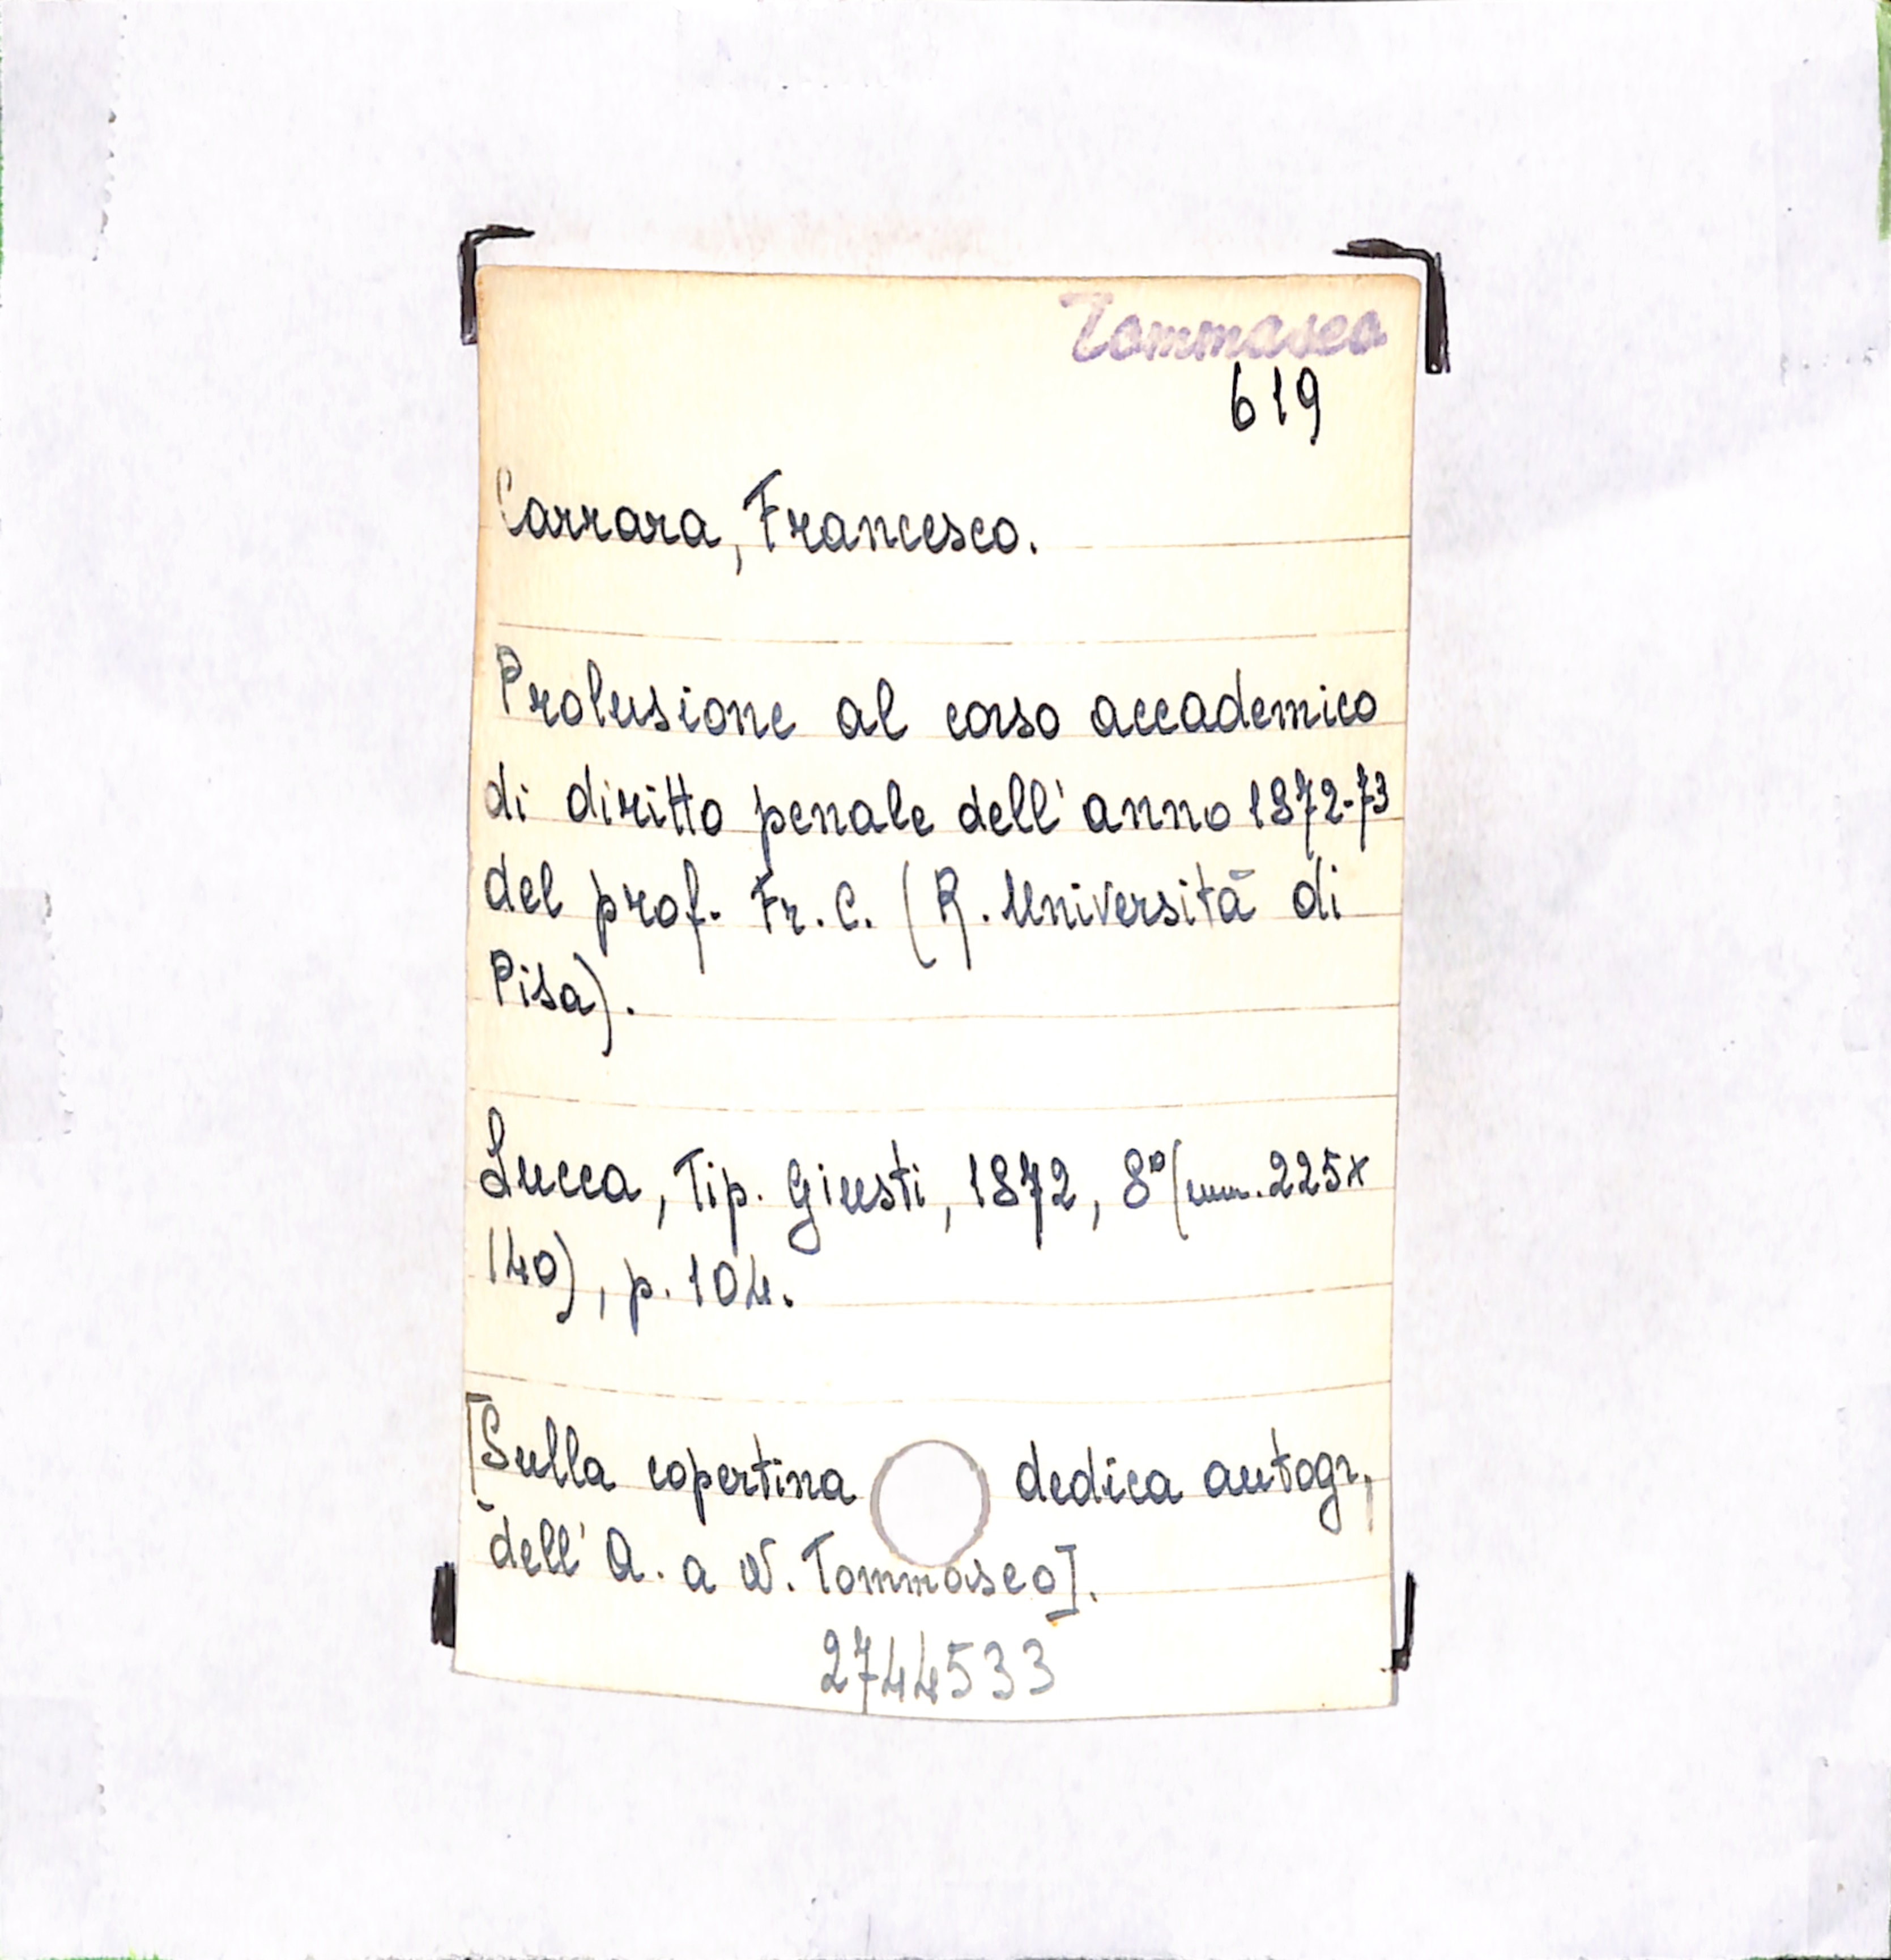 Tommaseo
619
Carrara, Francesco.
Prolusione al corso accademico
di diritto penale dell'anno 1872-73
del prof. Fr. C. (R. Università di
Pisa).
Lucca, Tip. Giusti, 1872, 8° (mm. 225x
140), p. 104.
[Sulla copertina dedica autogr.
dell'A. a N. Tommaseo].
2744533